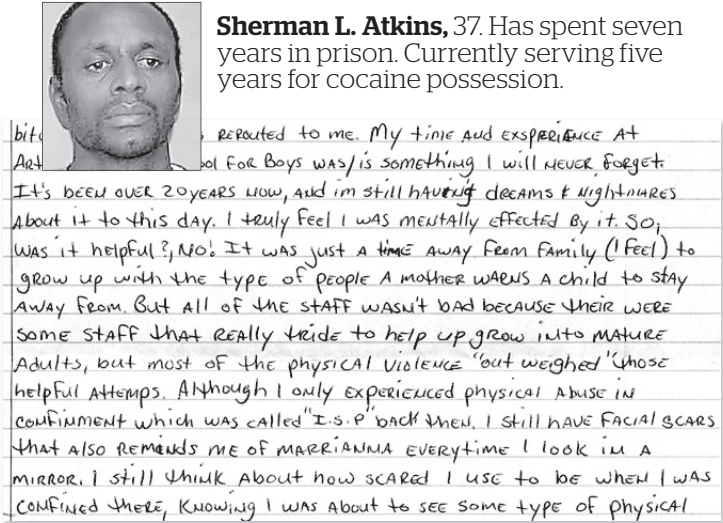 Sherman L. Atkins, 37. Has spent seven
years in prison. Currently serving five
years for cocaine possession.
REROUTED to me. My time AND EXSPERIENCE AT
FOR Boys WAS/is something I will NEVER forget.
It's BEEN OVER 20 YEARS NOW, AND im still HAVING DREAMS & NightMARES
About it to this DAY. I truly FEEL I WAS MENTALLY EFFECTED By it. SO,
WAS it helpful?, NO! It WAS just A time AWAY From FAMily (I FEEl) to
grow up with the type of people A mother WARNS A child to stAy
AWAY from. But All of the StAFF WASN'T BAD BECAUSE their WERE
SOME StAFF that REAlly tRIDE to help up grow into MATURE
Adults, but most of the physical Violence "out weighed" those
helpful Attemps. Although I only EXPERIENCED physical Abuse in
CONFINMENT which WAS CAllED "I.S.P" back then. I still HAVE FACIAL SCARS
that Also REMINDS ME of MARRIANNA EVERYTIME I look in A
MIRROR. I still think About how SCARED I USE to bE whEN I WAS
CONFINED there, KNOWING I WAS About to SEE SOME typE of physical